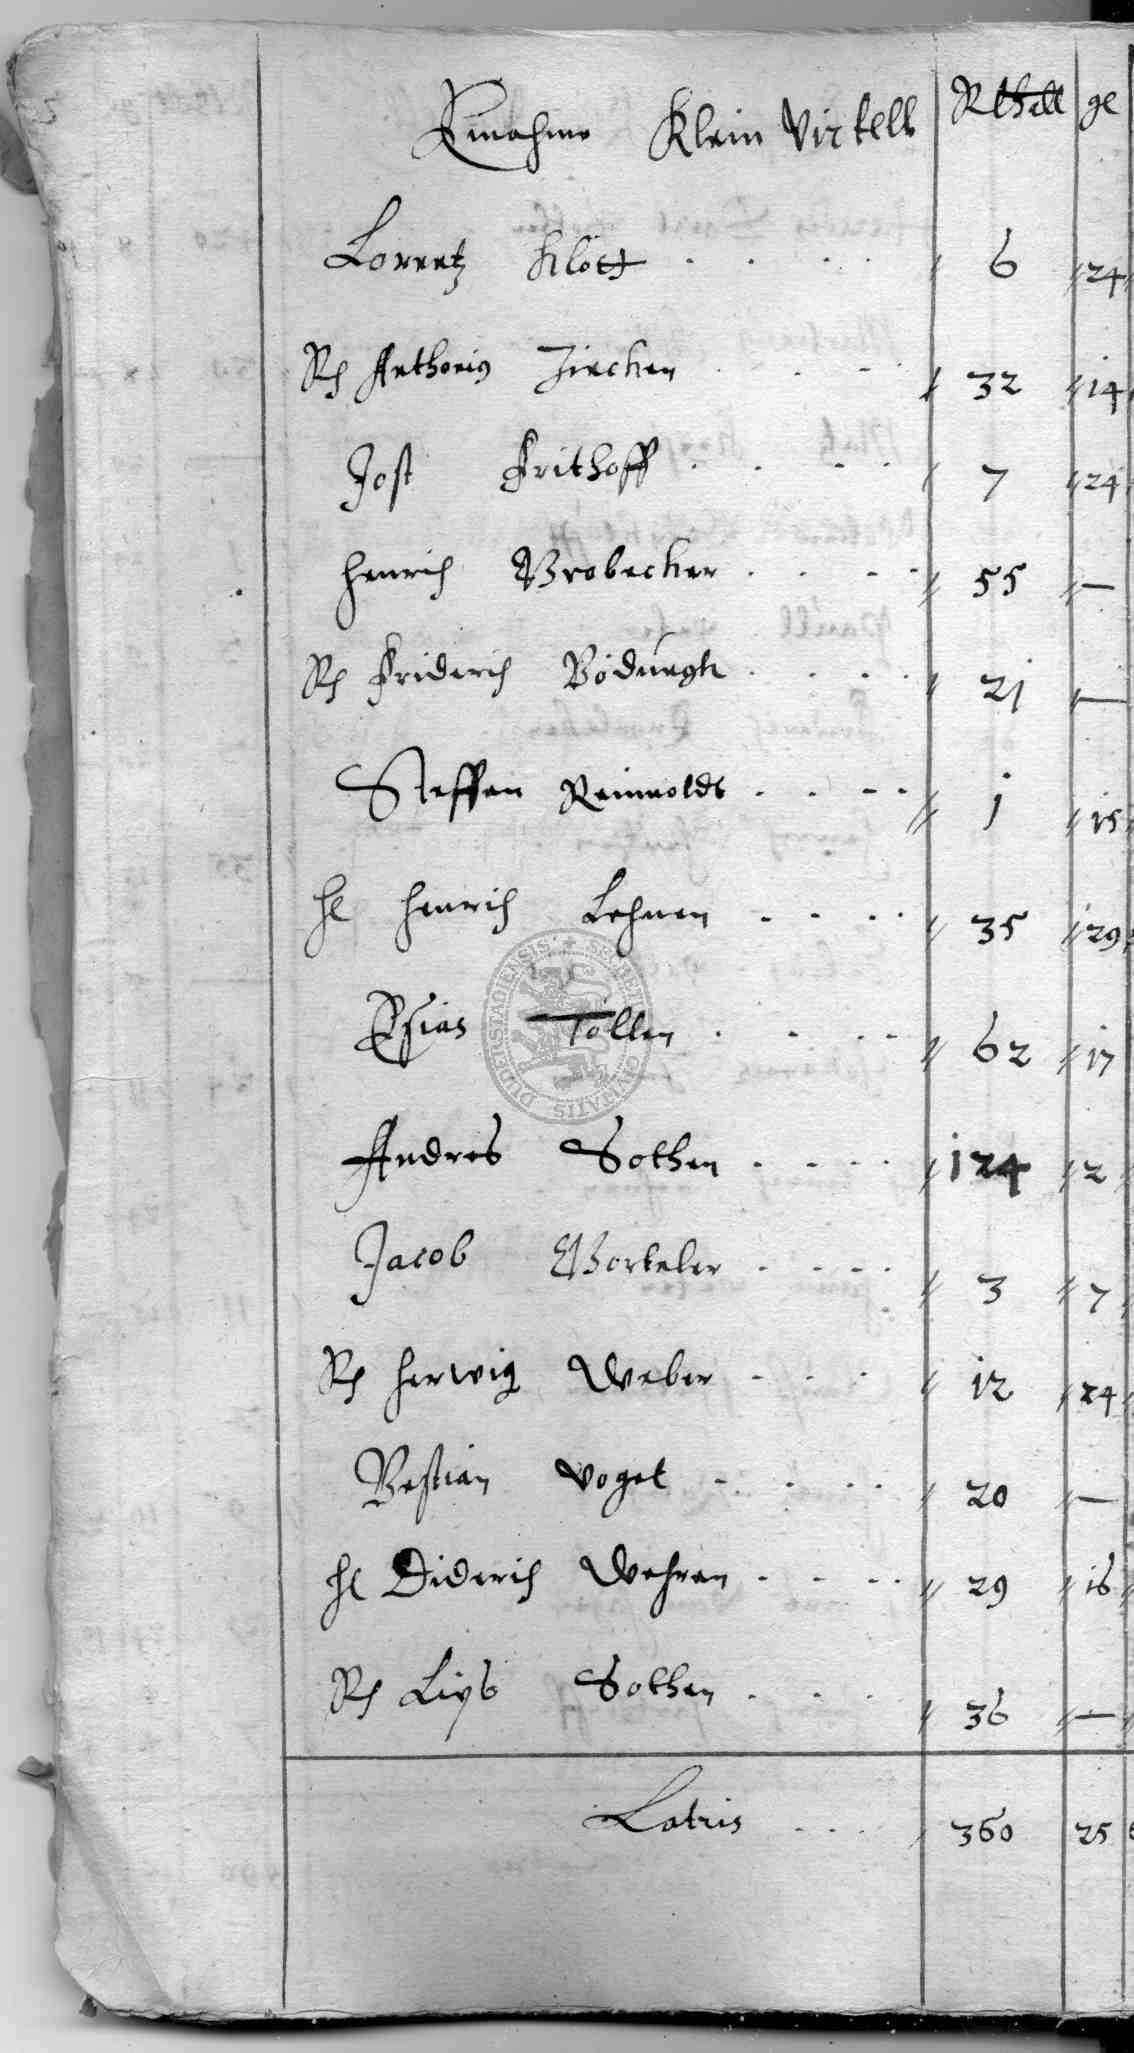 Einahme Klein Virtell Rthall gl
Lorentz Klött 6 24
Rh Anthonius Zircken 32 14
Jost Frithoff 7 24
Henrich Brobecker 55 —
Rh Friderich Bödungk 21 —
Steffen Reinnolds 1 15
Hl Henrich Lehnen 35 29
Esias Töllen 62 17
Andres Sothen 124 2
Jacob Workeler 3 7
Rh Herwig Weber 12 24
Bestian Voget 20 —
Hl Diderich Wehren 29 16
Rh Liyb Sothen 36 —
Latris 360 25
SIGILLUM CIVITATIS DUDERSTADIENSIS